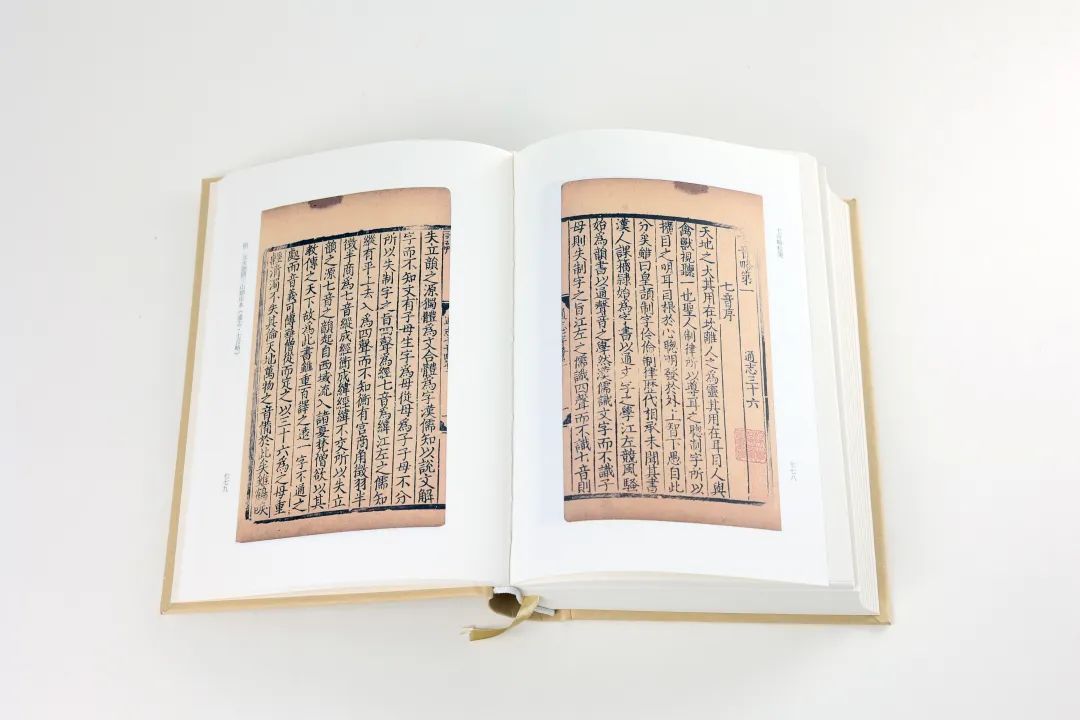 音略第一
通志三十六
七音序
天地之大其用在坎離人之為靈其用在耳目人與
禽獸視聽一也聖人制律所以導耳之聰制字所以
擴目之明耳目根於心聰明發於外上智下愚自此
分矣雖曰皇頡制字伶倫制律歷代相承未聞其書
漢人課籀隸始為字書以通文字之學江左競風騷
始為韻書以通聲音之學然漢儒識文字而不識子
母則失制字之旨江左之儒識四聲而不識七音則
失立韻之源獨體為文合體為字漢儒知以說文解
字而不知文有子母生字為母從母為子子母不分
所以失制字之旨四聲為經七音為緯江左之儒知
縱有平上去入為四聲而不知衡有宮商角徵羽半
徵半商為七音縱成經衡成緯經緯不交所以失立
韻之源七音之韻起自西域流入諸夏梵僧欲以其
教傳之天下故為此書雖重百譯之遠一字不通之
處而音義可傳華僧從而定之以三十六為之母重
輕清濁不失其倫天地萬物之音備於此矣雖鶴唳
《通志·七音略》